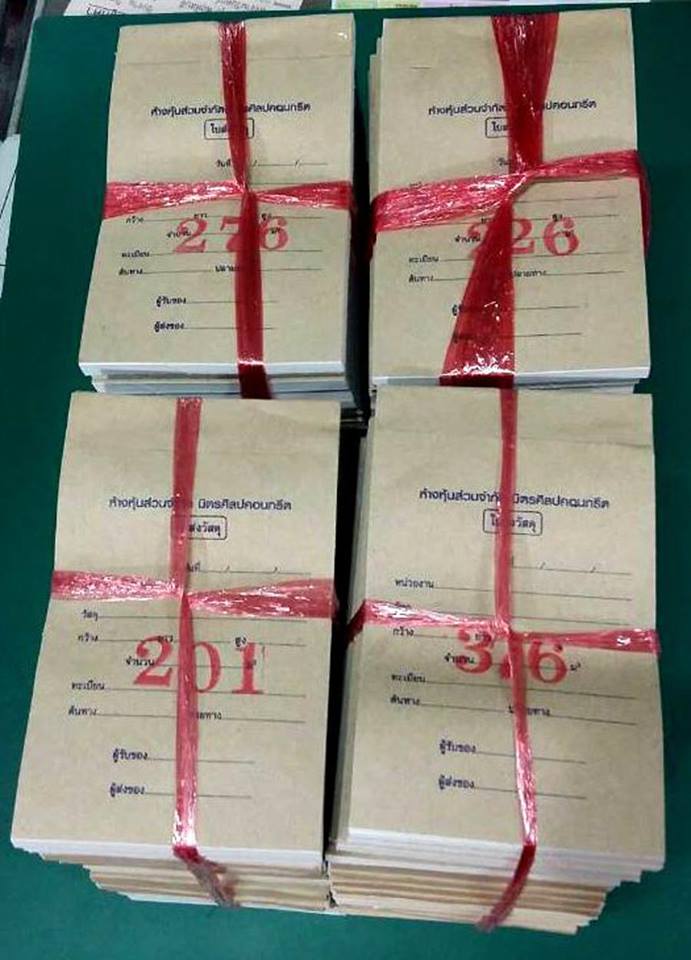 ห้างหุ้นส่วนจำกัด
ศิลปคอนกรีต
วันที่ / /
กว้าง ยาว สูง
276
จำนวน ม³
ทะเบียน
ต้นทาง
ผู้รับของ
ผู้ส่งของ
ห้างหุ้นส่วนจำกัด
ศิลปคอนกรีต
สูง
226
จำนวน ม³
ทะเบียน
ต้นทาง ปลายทาง
ห้างหุ้นส่วนจำกัด มิตรศิลปคอนกรีต
ส่งวัสดุ
/ /
วัสดุ
กว้าง ยาว สูง
201
จำนวน ม³
ทะเบียน
ต้นทาง
ผู้รับของ
ผู้ส่งของ
ห้างหุ้นส่วนจำกัด มิตรศิลปคอนกรีต
วัสดุ
/ /
หน่วยงาน
กว้าง ยาว
จำนวน ม³
ทะเบียน
ต้นทาง ปลายทาง
ผู้รับของ
ผู้ส่งของ